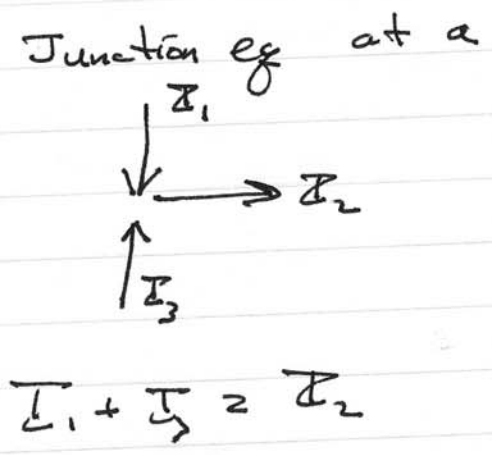 Junction eq at a
I₁
I₂
I₃
I₁ + I₃ = I₂